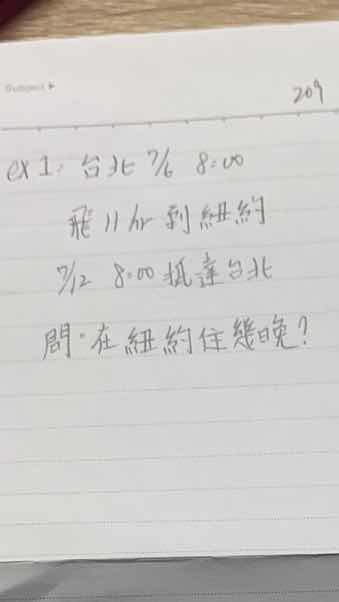 Subject
209
ex 1: 台北 7/6 8:00
飛 11 hr 到紐約
7/12 8:00 抵達台北
問:在紐約住幾晚?